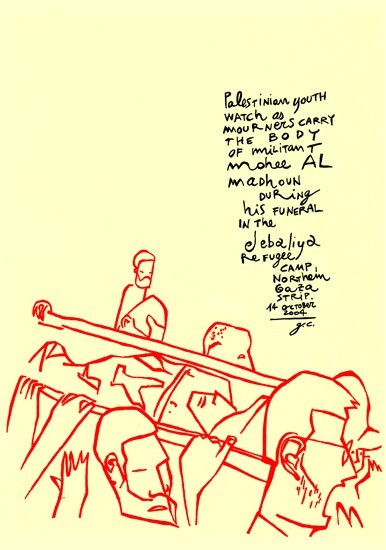 Palestinian youth
watch as
mourners carry
the body
of militant
mohee AL
madhoun
during
his funeral
in the
Jebaliya
Refugee
camp,
Northern
Gaza
strip.
14 october
2004
g.c.